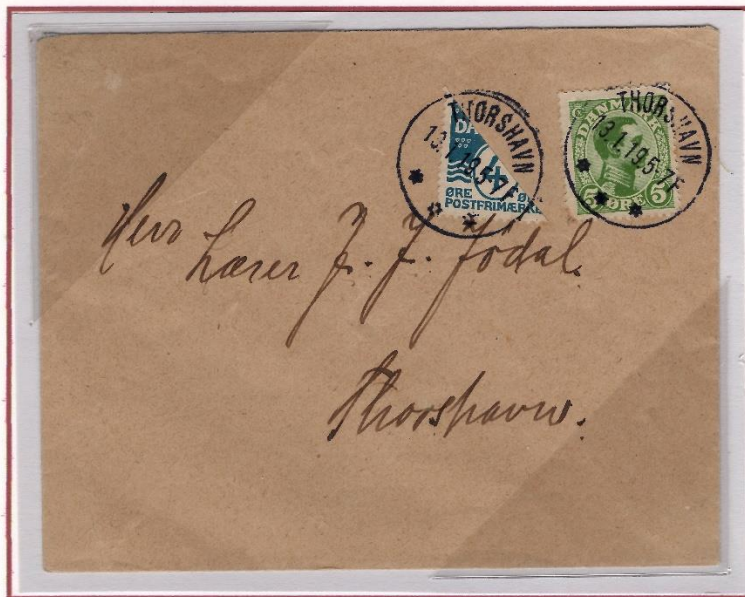 THORSHAVN
13.1.19.5-7F
DA
4
ØRE
POSTFRIMÆRKE
THORSHAVN
13.1.19.5-7F
DANMARK
5 ØRE 5
Herr
Lærer J. J. Jødal.
Thorshavn.